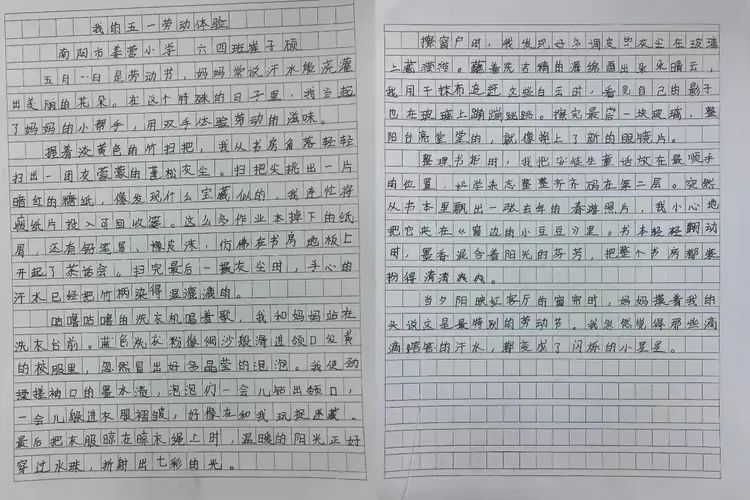 我的五一劳动体验
南阳市姜营小学 六四班崔子硕
五月一日是劳动节，妈妈常说汗水能浇灌
出美丽的花朵。在这个特殊的日子里，我当起
了妈妈的小帮手，用双手体验劳动的滋味。
握着淡黄色的竹扫把，我从书房角落轻轻
扫出一团灰蒙蒙的蓬松灰尘。扫把尖挑出一片
暗红的糖纸，像发现什么宝藏似的，我连忙将
糖纸片投入可回收篓。这么多作业本掉下的纸
屑，还有铅笔屑、橡皮沫，仿佛在书房地板上
开起了茶话会。扫完最后一撮灰尘时，手心的
汗水已经把竹柄染得湿漉漉的。
咕嘻咕嘻的洗衣机唱着歌，我和妈妈站在
洗衣台前。蓝色洗衣粉像细沙般滑进领口发黄
的校服里，忽然冒出好多晶莹的泡泡。我使劲
揉搓袖口的墨水渍，泡泡们一会儿钻出领口，
一会儿躲进衣服褶皱，好像在和我玩捉迷藏。
最后把衣服晾在晾衣绳上时，温暖的阳光正好
穿过水珠，折射出七彩的光。
擦窗户时，我发现好多调皮的灰尘在玻璃
上藏猫猫。蘸着洗洁精的海绵画出朵朵晴云，
我用干抹布追赶这些白云时，看见自己的影子
也在玻璃上蹦蹦跳跳。擦完最后一块玻璃，整
阳台亮堂堂的，就像换上了新的眼镜片。
整理书柜时，我把安徒生童话放在最顺手
的位置，科学杂志整整齐齐码在第二层。突然
从书本里飘出一张去年的春游照片，我小心地
把它夹在《窗边的小豆豆》里。书本轻轻翻动
时，墨香混合着阳光的芬芳，把整个书房都装
扮得清清爽爽。
当夕阳映红客厅的窗帘时，妈妈摸着我的
头说这是最特别的劳动节。我忽然觉得那些滴
滴嗒嗒的汗水，都变成了闪烁的小星星。